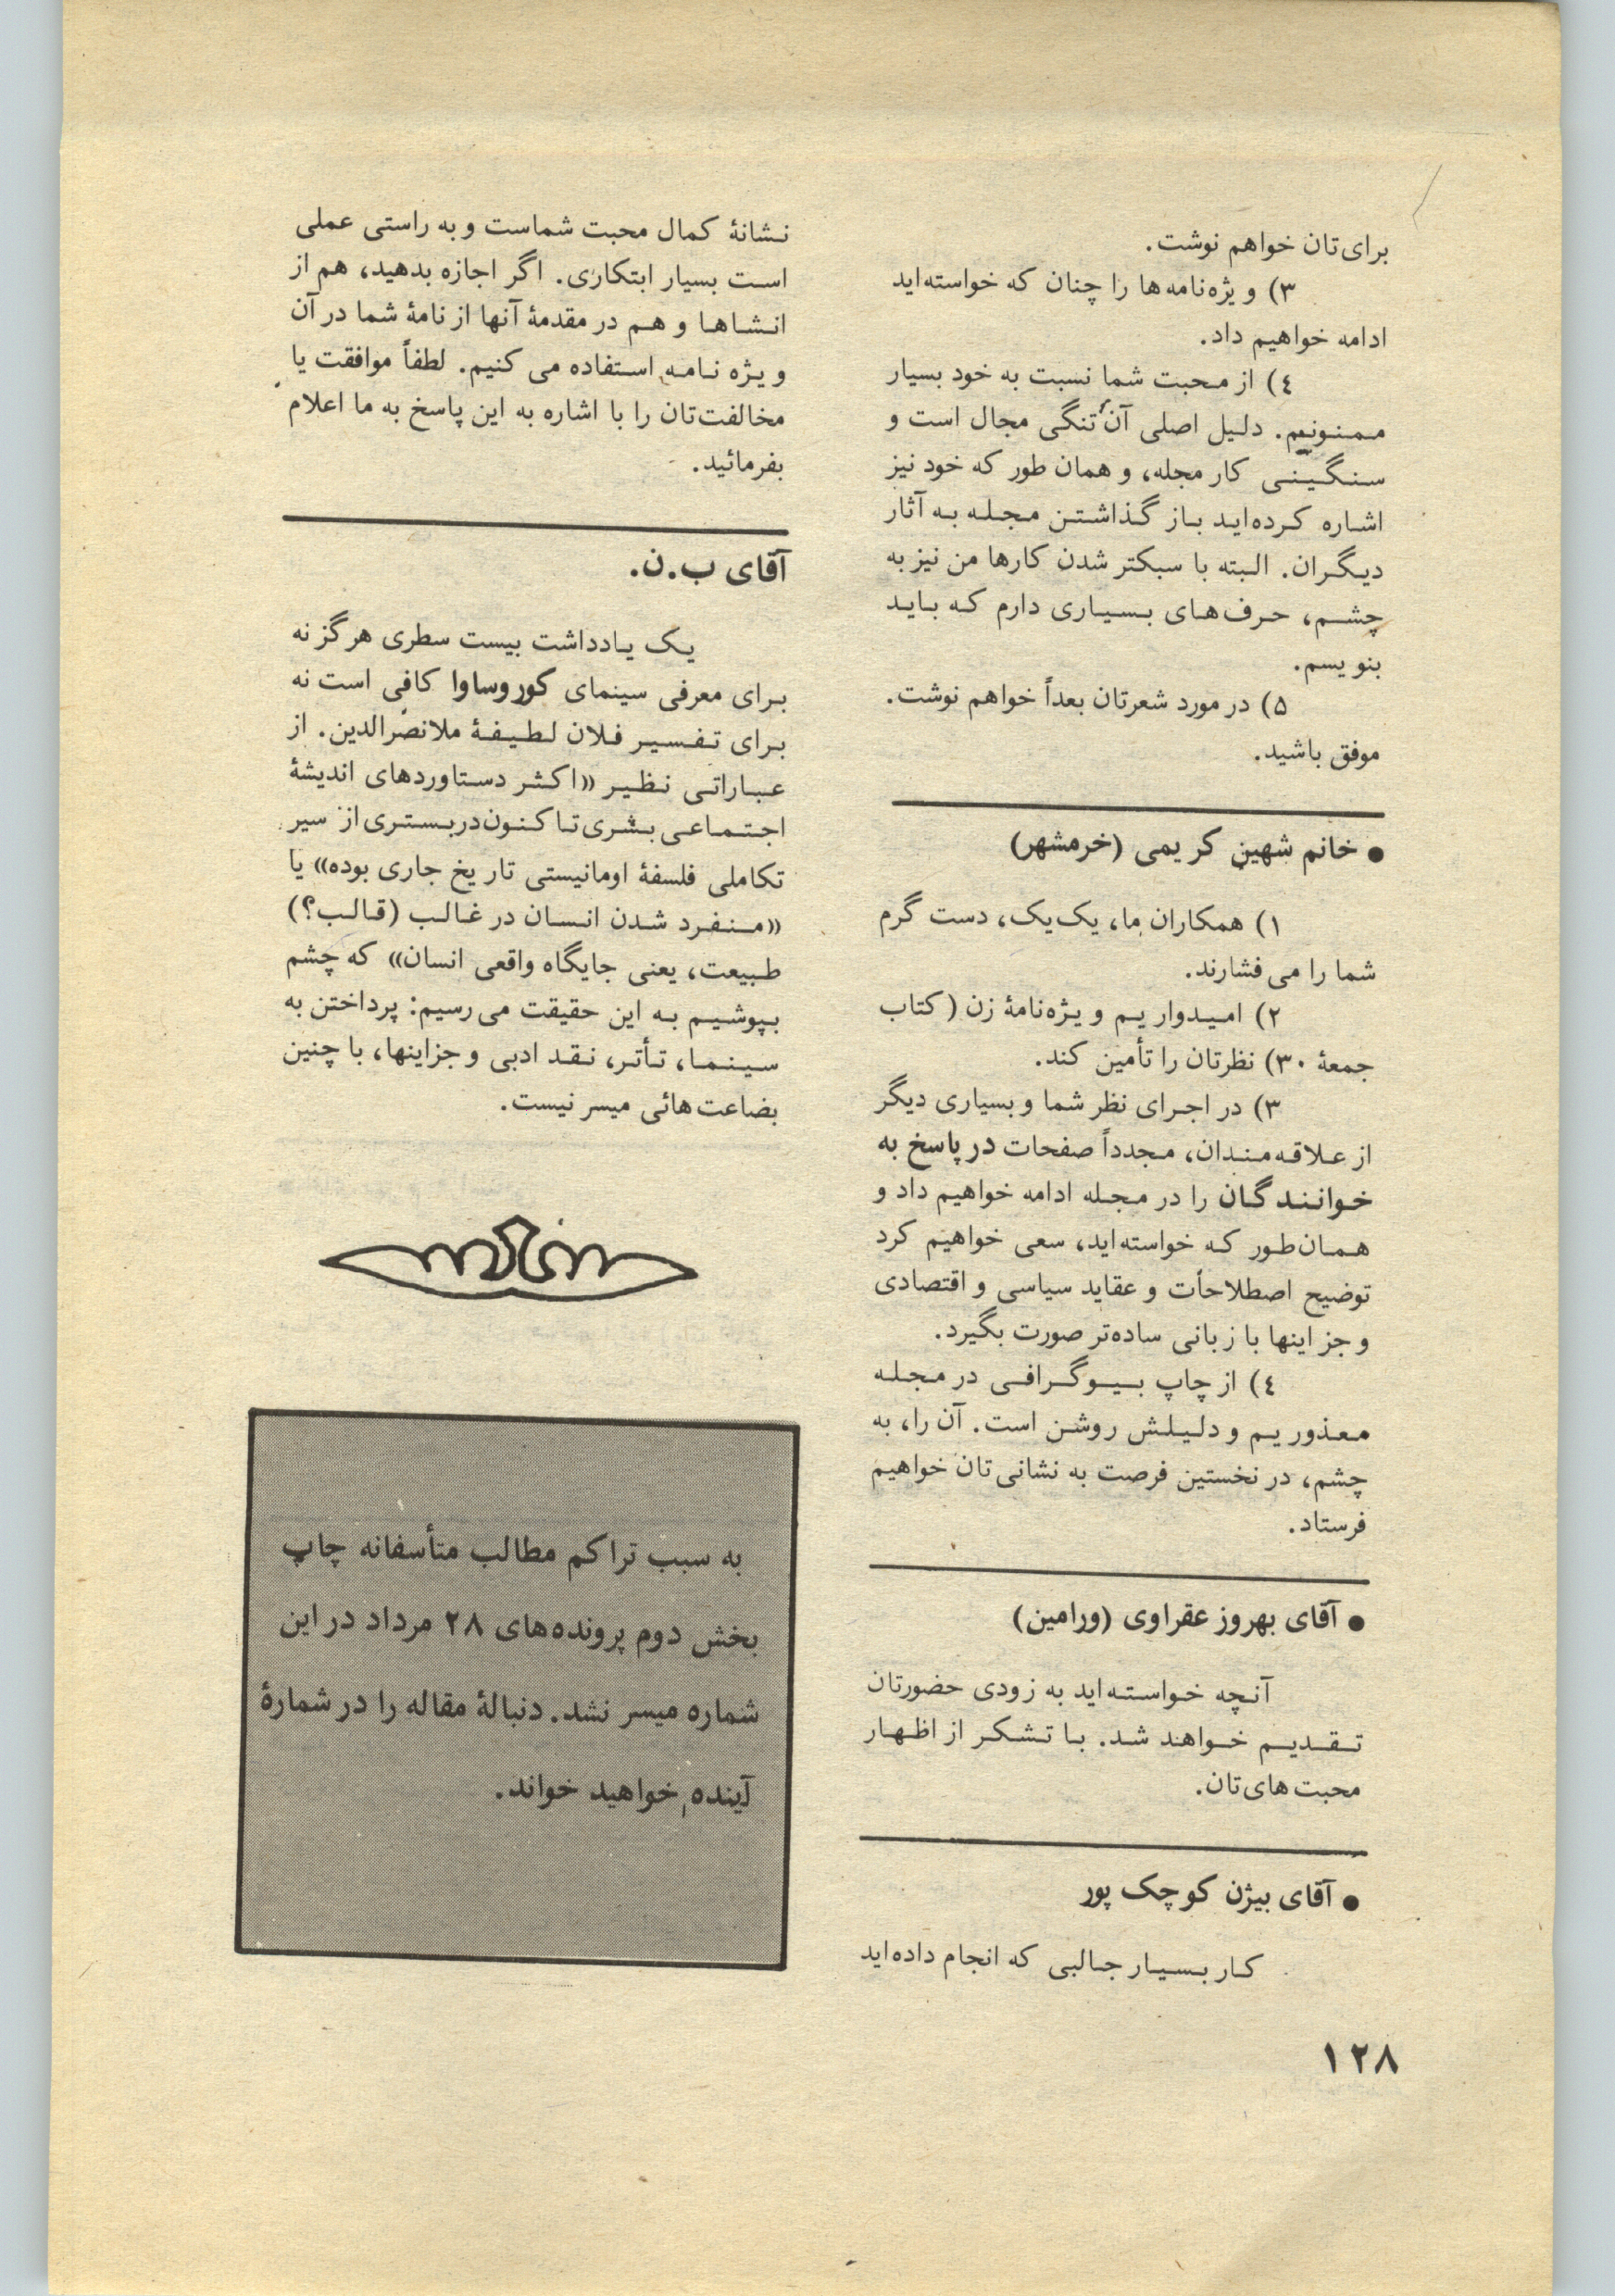 برای‌تان خواهم نوشت.
۳) ویژه‌نامه‌ها را چنان که خواسته‌اید
ادامه خواهیم داد.
٤) از محبت شما نسبت به خود بسیار
ممنونیم. دلیل اصلی آن تنگی مجال است و
سنگینی کار مجله، و همان طور که خود نیز
اشاره کرده‌اید باز گذاشتن مجله به آثار
دیگران. البته با سبکتر شدن کارها من نیز به
چشم، حرف‌های بسیاری دارم که باید
بنویسم.
۵) در مورد شعرتان بعداً خواهم نوشت.
موفق باشید.
● خانم شهین کریمی (خرمشهر)
۱) همکاران ما، یک‌یک، دست گرم
شما را می‌فشارند.
۲) امیدواریم ویژه‌نامهٔ زن (کتاب
جمعهٔ ۳۰) نظرتان را تأمین کند.
۳) در اجرای نظر شما و بسیاری دیگر
از علاقه‌مندان، مجدداً صفحات در پاسخ به
خوانندگان را در مجله ادامه خواهیم داد و
همان‌طور که خواسته‌اید، سعی خواهیم کرد
توضیح اصطلاحات و عقاید سیاسی و اقتصادی
و جز اینها با زبانی ساده‌تر صورت بگیرد.
٤) از چاپ بیوگرافی در مجله
معذوریم و دلیلش روشن است. آن را، به
چشم، در نخستین فرصت به نشانی‌تان خواهیم
فرستاد.
● آقای بهروز عقراوی (ورامین)
آنچه خواسته‌اید به زودی حضورتان
تقدیم خواهد شد. با تشکر از اظهار
محبت‌های‌تان.
● آقای بیژن کوچک پور
کار بسیار جالبی که انجام داده‌اید
نشانهٔ کمال محبت شماست و به راستی عملی
است بسیار ابتکاری. اگر اجازه بدهید، هم از
انشاها و هم در مقدمهٔ آنها از نامهٔ شما در آن
ویژه نامه استفاده می کنیم. لطفاً موافقت یا
مخالفت‌تان را با اشاره به این پاسخ به ما اعلام
بفرمائید.
آقای ب.ن.
یک یادداشت بیست سطری هرگز نه
برای معرفی سینمای کوروساوا کافی است نه
برای تفسیر فلان لطیفهٔ ملانصرالدین. از
عباراتی نظیر «اکثر دستاوردهای اندیشهٔ
اجتماعی بشری تاکنون در بستری از سیر
تکاملی فلسفهٔ اومانیستی تاریخ جاری بوده» یا
«منفرد شدن انسان در غالب (قالب؟)
طبیعت، یعنی جایگاه واقعی انسان» که چشم
بپوشیم به این حقیقت می‌رسیم: پرداختن به
سینما، تأتر، نقد ادبی و جزاینها، با چنین
بضاعت‌هائی میسر نیست.
به سبب تراکم مطالب متأسفانه چاپ
بخش دوم پرونده‌های ۲۸ مرداد در این
شماره میسر نشد. دنبالهٔ مقاله را در شمارهٔ
آینده خواهید خواند.
۱۲۸